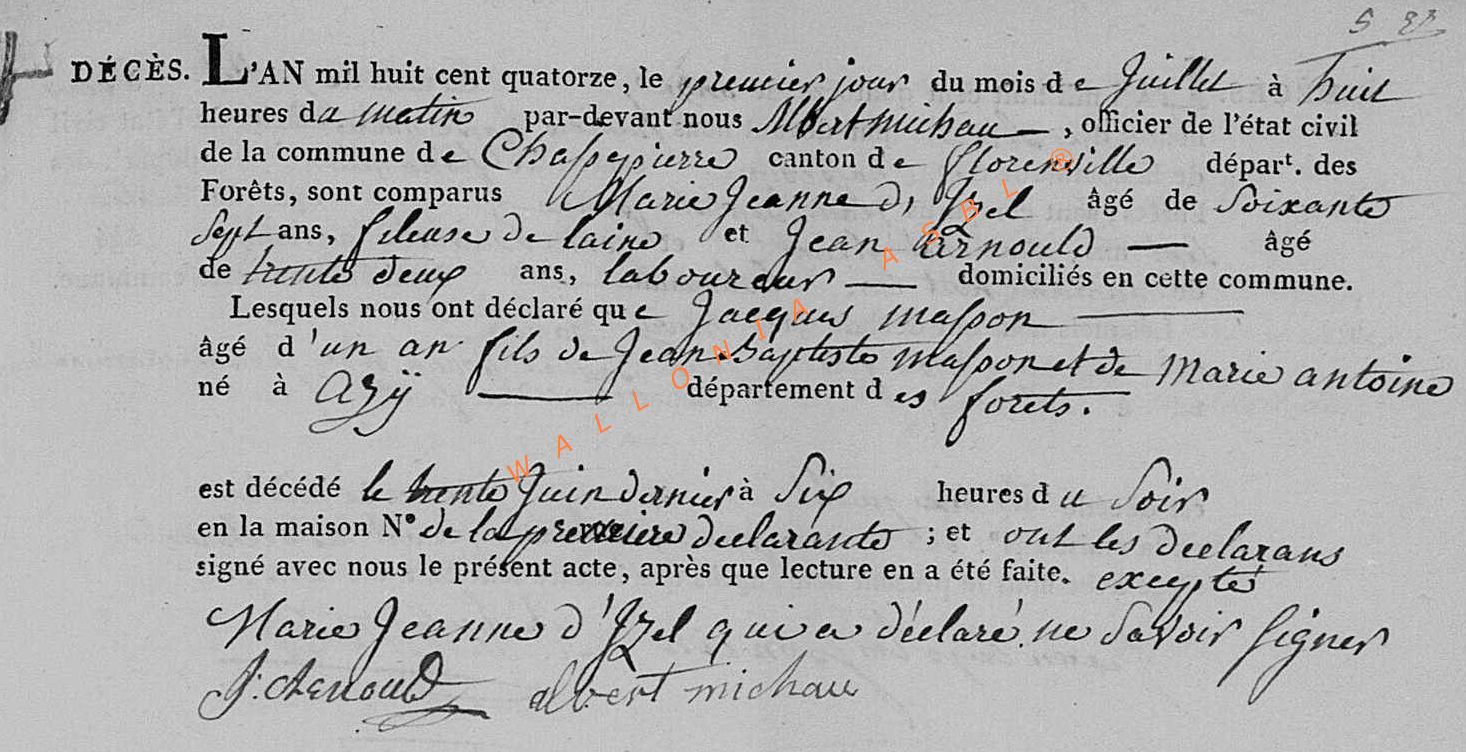 DÉCÈS. L'AN mil huit cent quatorze, le premier jour du mois de Juillet à huit
heures du matin par-devant nous Albert michau —, officier de l'état civil
de la commune de Chassepierre canton de florenville départ. des
Forêts, sont comparus Marie Jeanne d'Izel âgé de Soixante
Sept ans, fileuse de laine et Jean Arnould — âgé
de trente deux ans, laboureur — domiciliés en cette commune.
Lesquels nous ont déclaré que Jacques masson —
âgé d'un an fils de Jean-baptiste masson et de Marie antoine
né à azÿ — département des forets.
est décédé le trente Juin dernier à Six heures du Soir
en la maison N° de la premiere declarante ; et ont les declarans
signé avec nous le présent acte, après que lecture en a été faite. excepté
Marie Jeanne d'Izel qui a déclaré ne Savoir signer
J: Arnould albert michau
WALLONIA ASBL ®